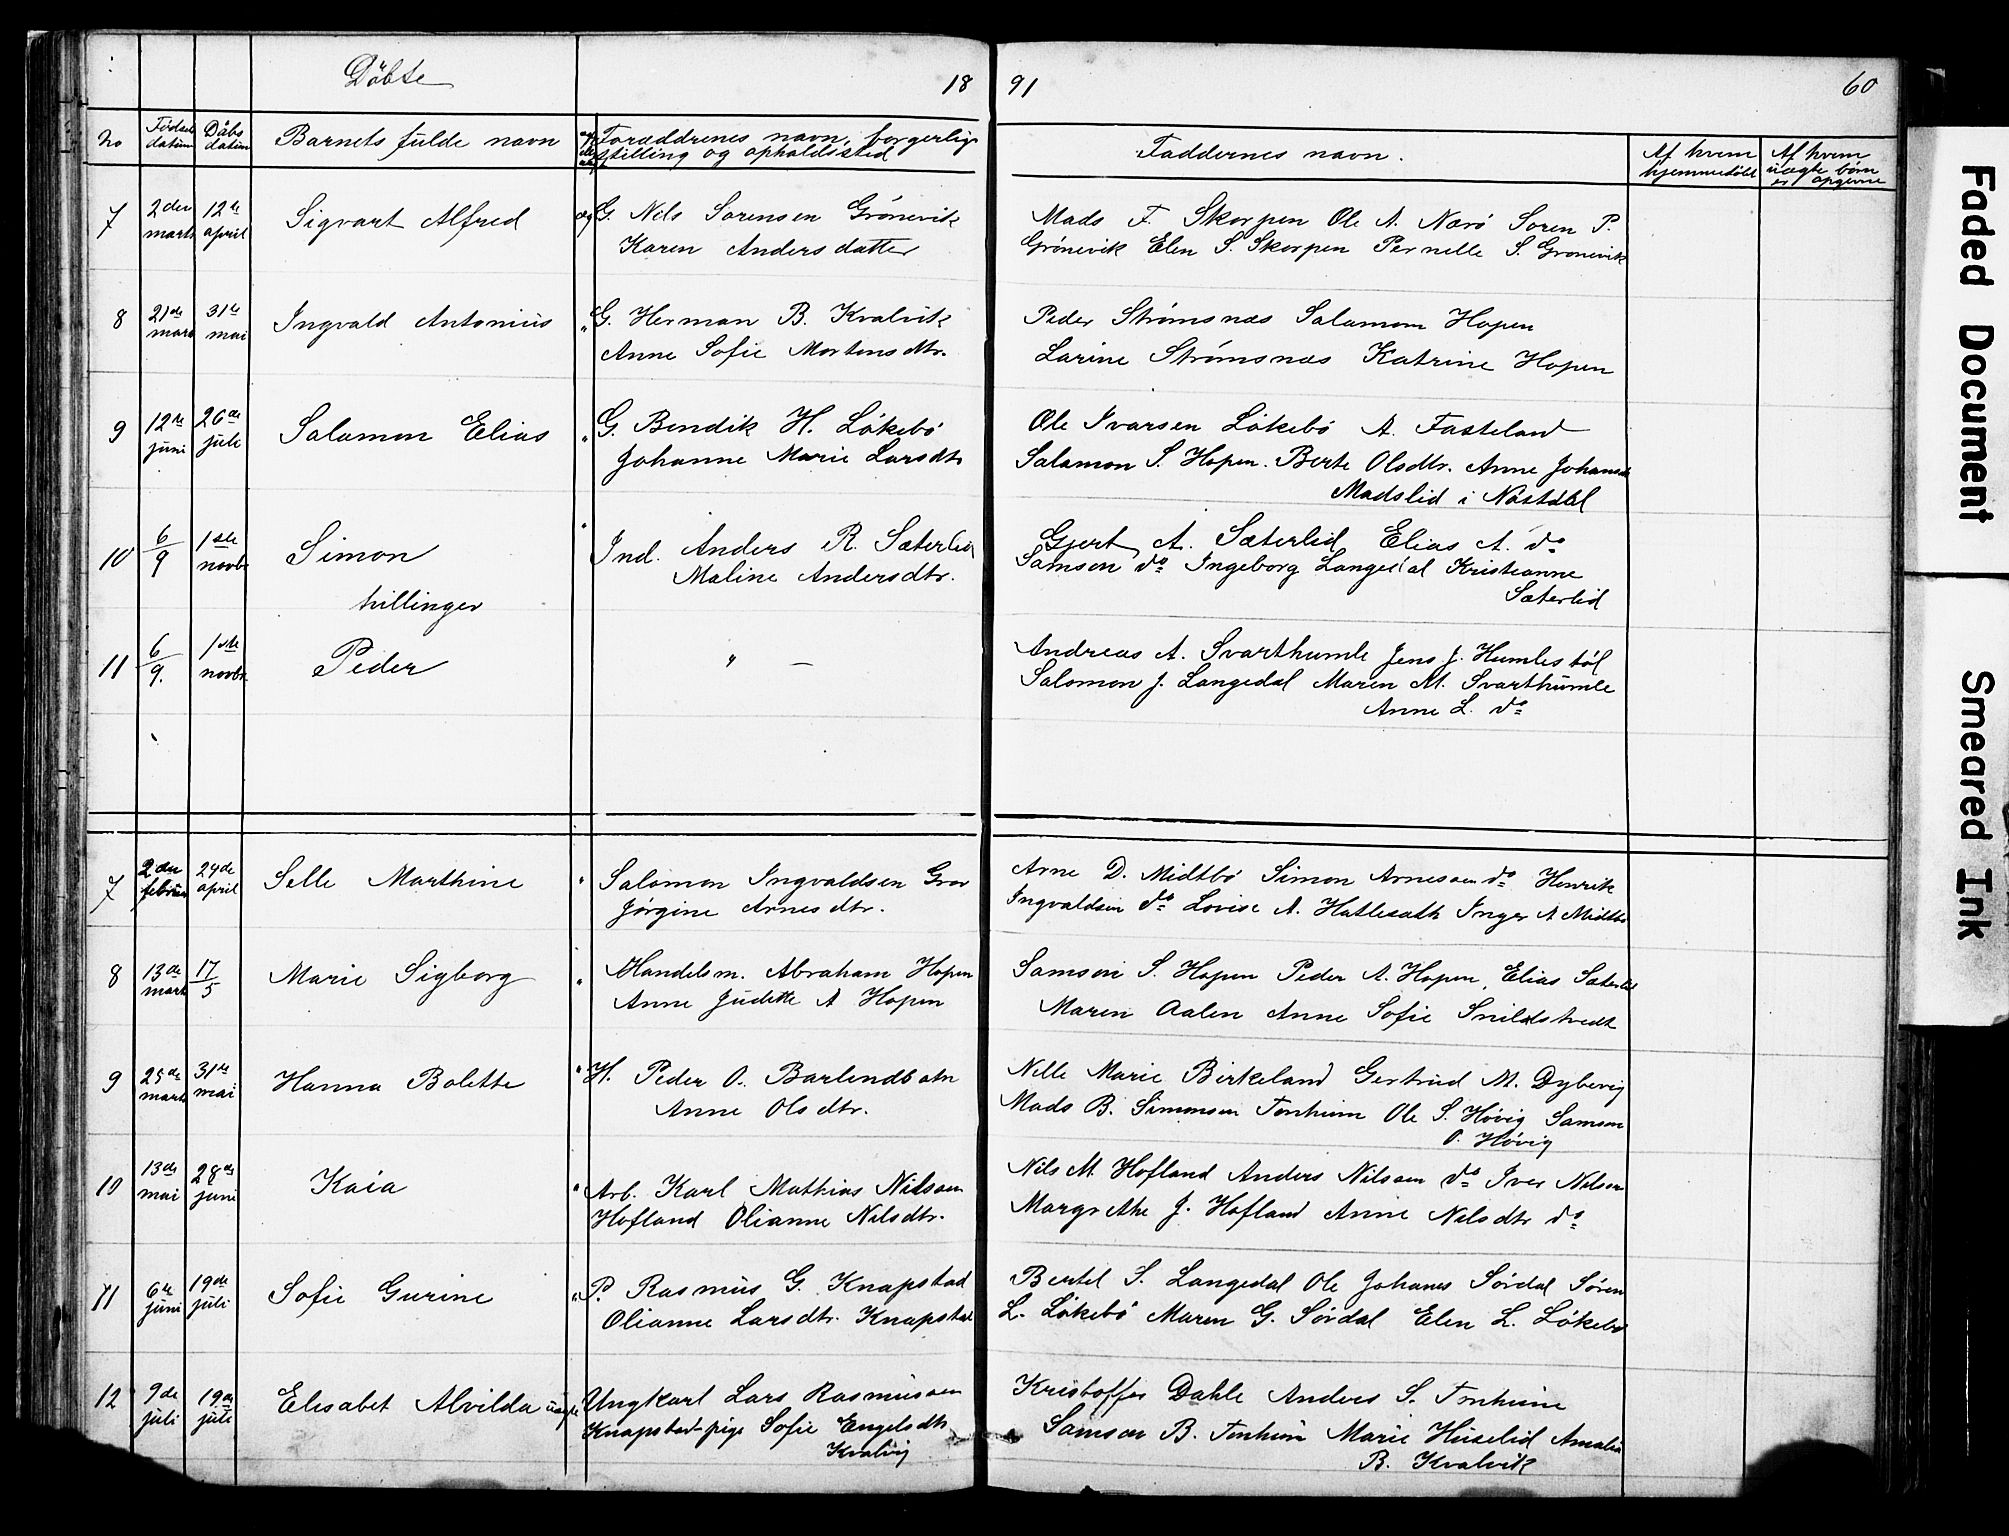 Döbte 18 91 60
No Fødsels datum Dåbs datum Barnets fulde navn Foræddrenes navn, borgerlig stilling og opholdssted Faddernes navn. Af hvem hjemmedöbt Af hvem uægte børn er opgivne
7 2den marts 12te april Sigvart Alfred æg G. Nels Sorensen Grönevik Mads F. Skorpen Ole A. Nærö Soren P.
Karen Andersdatter Grönevik Elen S. Skorpen Pernelle S. Gronevik
8 21de mars 31te mai Ingvald Antonius " G. Herman B. Kvalvik Peder Strömsnæs Salamon Hopen
Anne Sofie Mortensdtr. Larine Strömsnæs Katrine Hopen
9 12te juni 26de juli Salamon Elias " G. Bendik H. Lökebö Ole Ivarsen Lökebö A. Fasteland
Johanne Marie Larsdtr Salamon S. Hopen. Berte Olsdtr. Anne Johansd
Madslid i Nastdal
10 6/9 1ste novbr Simon " Ind. Anders R. Sæterlid Gjert A. Sæterlid Elias A. do
Maline Andersdtr. Samson do Ingeborg Langedal Kristianne
tvillinger Sæterlid
11 6/9. 1ste novbr. Peder " — Andreas A. Svarthumle Jens J. Humlestöl
Salomon J. Langedal Maren M. Svarthumle
Anne L. do
7 2den februar 24de april Selle Marthine " Salomon Ingvaldsen Grov Arne D. Midtbö Simon Arnesen do Henrik
Jörgine Arnesdtr. Ingvaldsen do Lovise A. Hatlesath Inger A Midtbö
8 13de marts 17/5 Marie Sigborg " Handelsm. Abraham Hopen Samson S. Hopen Peder A. Hopen, Elias Sæterlid
Anne Judette A Hopen Maren Aalen Anne Sofie Snildstvedt
9 25de marts 31te mai Hanna Bolette " H. Peder O. Barlindbotn Nille Marie Birkeland Gertrud M. Dybevig
Anne Olsdtr. Mads B. Simonsen Tonheim Ole S. Hövig Samson
O. Hövig
10 13de mai 28de juni Kaia " Arb. Karl Mathias Nilsen Nils M. Hofland Anders Nilsen do Iver Nilsen
Hofland Olianne Nilsdtr. Margrethe J. Hofland Anne Nilsdtr do
11 6te juni 19de juli Sofie Gurine " P. Rasmus G. Knapstad Bertel S. Langedal Ole Johanes Sördal Sören
Olianne Larsdtr. Knapstad L. Lökebö Maren G. Sördal Elen L. Lökebö
12 9de juli 19de juli Elisabet Alvilda uægte Ungkarl Lars Rasmussen Kristoffer Dahle Anders S. Tonheim
Knapstad pige Sofie Engelsdtr Samson B. Tonheim Marie Huselid Amalia
Kvalvig B. Kvalvik
Faded Document
Smeared Ink